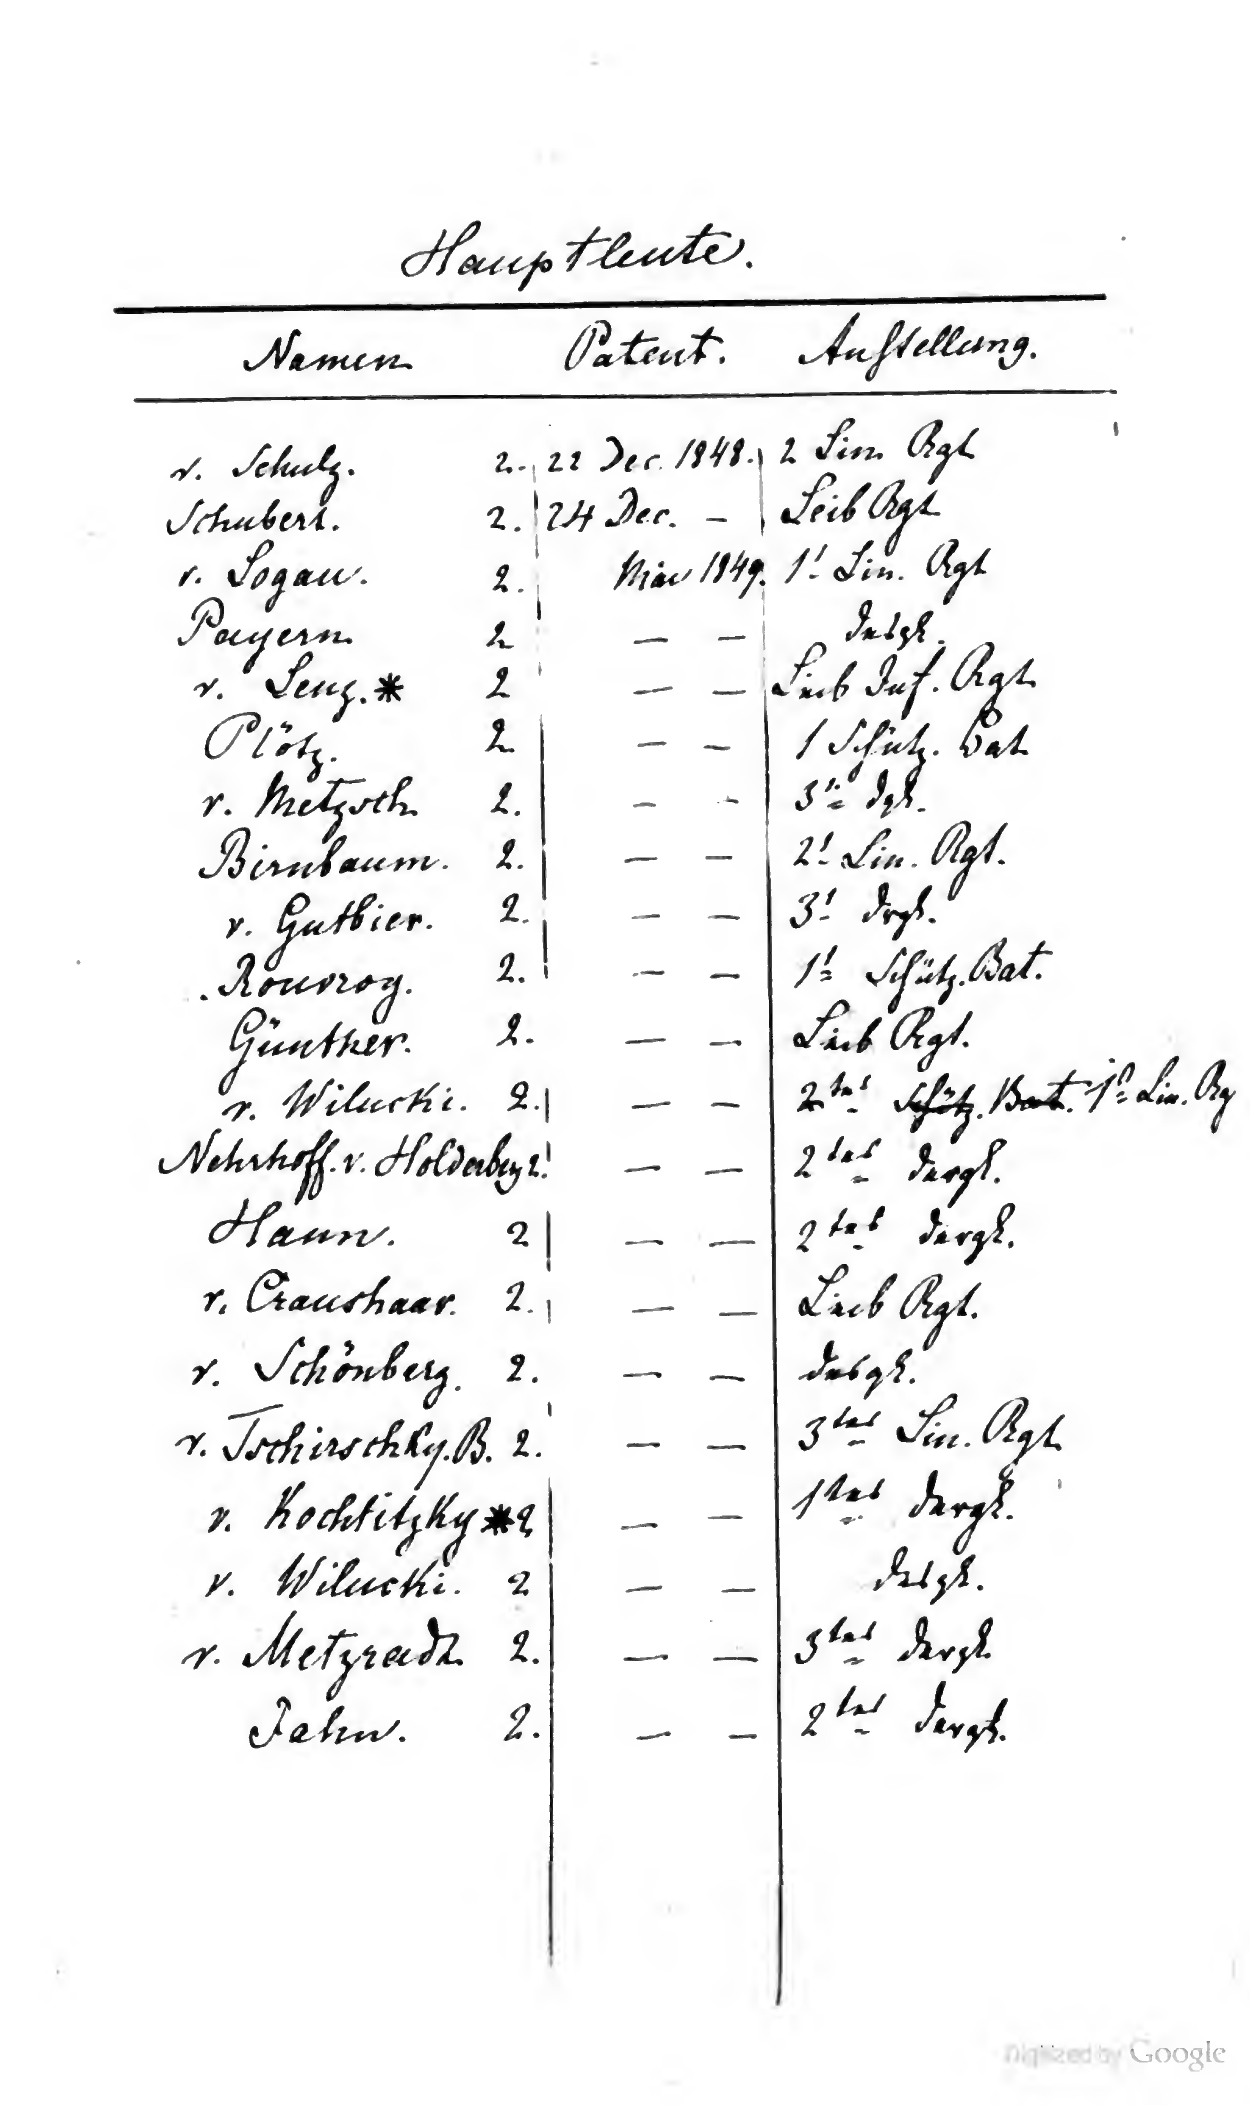 Hauptleute.
Namen. Patent. Anstellung.
v. Schulz. 2. 22 Dec. 1848. 2 Lin. Rgt
Schubert. 2. 24 Dec. — Leib Rgt
v. Logau. 2. 1849. 1t Lin. Rgt
Payern. 2 — — desgl.
v. Lenz.* 2 — — Leib Inf. Rgt.
Plötz. 2. — — 1 Schütz. Bat
v. Metzsch. 2. — — 3te dgl.
Birnbaum. 2. — — 2t Lin. Rgt.
v. Gutbier. 2. — — 3t drgl.
Rouvroy. 2. — — 1t Schütz. Bat.
Günther. 2. — — Leib Rgt.
v. Wilucki. 2. — — 2tes Schütz. Bat. 1t Lin. Rg
Nehrhoff. v. Holderberg 2. — — 2tes dergl.
Hann. 2 — — 2tes dergl.
v. Craushaar. 2. — — Leib Rgt.
v. Schönberg. 2. — — desgl.
v. Tschirschky. B. 2. — — 3tes Lin. Rgt
v. Kochtitzky * 2 — — 1tes dergl.
v. Wilucki. 2 — — desgl.
v. Metzradt. 2. — — 3tes dergl
Fahn. 2. — — 2tes dergl.
Digitized by Google